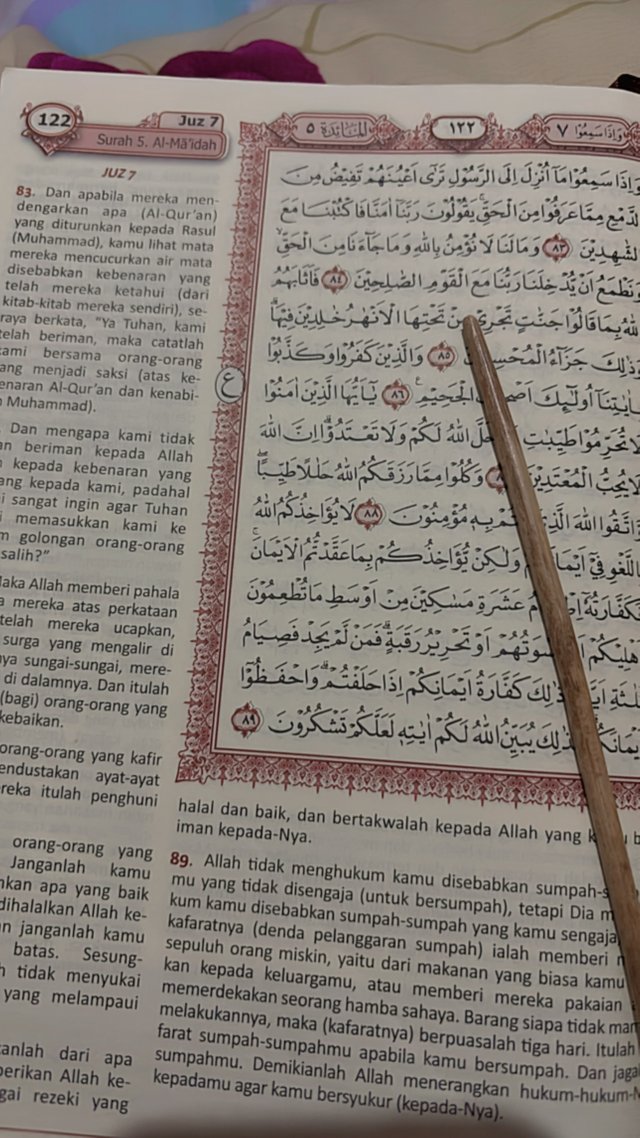 122
Juz 7
Surah 5. Al-Mā'idah
المائدة ٥
١٢٢
وَاِذَا سَمِعُوْا ٧
JUZ 7
83. Dan apabila mereka men-
dengarkan apa (Al-Qur'an)
yang diturunkan kepada Rasul
(Muhammad), kamu lihat mata
mereka mencucurkan air mata
disebabkan kebenaran yang
telah mereka ketahui (dari
kitab-kitab mereka sendiri), se-
raya berkata, "Ya Tuhan, kami
telah beriman, maka catatlah
kami bersama orang-orang
yang menjadi saksi (atas ke-
benaran Al-Qur'an dan kenabi-
Muhammad).
Dan mengapa kami tidak
beriman kepada Allah
kepada kebenaran yang
kepada kami, padahal
sangat ingin agar Tuhan
memasukkan kami ke
golongan orang-orang
salih?"
Maka Allah memberi pahala
mereka atas perkataan
telah mereka ucapkan,
surga yang mengalir di
sungai-sungai, mere-
di dalamnya. Dan itulah
(bagi) orang-orang yang
kebaikan.
orang-orang yang kafir
ayat-ayat
itulah penghuni
orang-orang yang
Janganlah kamu
apa yang baik
dihalalkan Allah ke-
janganlah kamu
batas. Sesung-
tidak menyukai
yang melampaui
dari apa
Allah ke-
rezeki yang
وَاِذَا سَمِعُوْا مَآ اُنْزِلَ اِلَى الرَّسُوْلِ تَرٰٓى اَعْيُنَهُمْ تَفِيْضُ مِنَ
الدَّمْعِ مِمَّا عَرَفُوْا مِنَ الْحَقِّۚ يَقُوْلُوْنَ رَبَّنَآ اٰمَنَّا فَاكْتُبْنَا مَعَ
الشّٰهِدِيْنَ ٨٣ وَمَا لَنَا لَا نُؤْمِنُ بِاللّٰهِ وَمَا جَاۤءَنَا مِنَ الْحَقِّۙ
وَنَطْمَعُ اَنْ يُّدْخِلَنَا رَبُّنَا مَعَ الْقَوْمِ الصّٰلِحِيْنَ ٨٤ فَاَثَابَهُمُ
اللّٰهُ بِمَا قَالُوْا جَنّٰتٍ تَجْرِيْ مِنْ تَحْتِهَا الْاَنْهٰرُ خٰلِدِيْنَ فِيْهَاۗ
وَذٰلِكَ جَزَاۤءُ ٨٥ وَالَّذِيْنَ كَفَرُوْا وَكَذَّبُوْا
بِاٰيٰتِنَآ اُولٰۤىِٕكَ الْجَحِيْمِ ٨٦ يٰٓاَيُّهَا الَّذِيْنَ اٰمَنُوْا
لَا تُحَرِّمُوْا طَيِّبٰتِ اللّٰهُ لَكُمْ وَلَا تَعْتَدُوْاۗ اِنَّ اللّٰهَ
لَا يُحِبُّ الْمُعْتَدِيْنَ وَكُلُوْا مِمَّا رَزَقَكُمُ اللّٰهُ حَلٰلًا طَيِّبًاۖ
وَّاتَّقُوا اللّٰهَ بِهٖ مُؤْمِنُوْنَ ٨٨ لَا يُؤَاخِذُكُمُ اللّٰهُ
بِاللَّغْوِ فِيْٓ وَلٰكِنْ يُّؤَاخِذُكُمْ بِمَا عَقَّدْتُّمُ الْاَيْمَانَۚ
فَكَفَّارَتُهٗٓ عَشَرَةِ مَسٰكِيْنَ مِنْ اَوْسَطِ مَا تُطْعِمُوْنَ
اَهْلِيْكُمْ اَوْ تَحْرِيْرُ رَقَبَةٍۗ فَمَنْ لَّمْ يَجِدْ فَصِيَامُ
ثَلٰثَةِ ذٰلِكَ كَفَّارَةُ اَيْمَانِكُمْ اِذَا حَلَفْتُمْۗ وَاحْفَظُوْٓا
يُبَيِّنُ اللّٰهُ لَكُمْ اٰيٰتِهٖ لَعَلَّكُمْ تَشْكُرُوْنَ ٨٩
ع
halal dan baik, dan bertakwalah kepada Allah yang
iman kepada-Nya.
89. Allah tidak menghukum kamu disebabkan
mu yang tidak disengaja (untuk bersumpah), tetapi Dia
kum kamu disebabkan sumpah-sumpah yang kamu
kafaratnya (denda pelanggaran sumpah) ialah memberi
sepuluh orang miskin, yaitu dari makanan yang biasa kamu
kan kepada keluargamu, atau memberi mereka pakaian
memerdekakan seorang hamba sahaya. Barang siapa tidak
melakukannya, maka (kafaratnya) berpuasalah tiga hari. Itulah
farat sumpah-sumpahmu apabila kamu bersumpah. Dan
sumpahmu. Demikianlah Allah menerangkan hukum-hukum-
kepadamu agar kamu bersyukur (kepada-Nya).